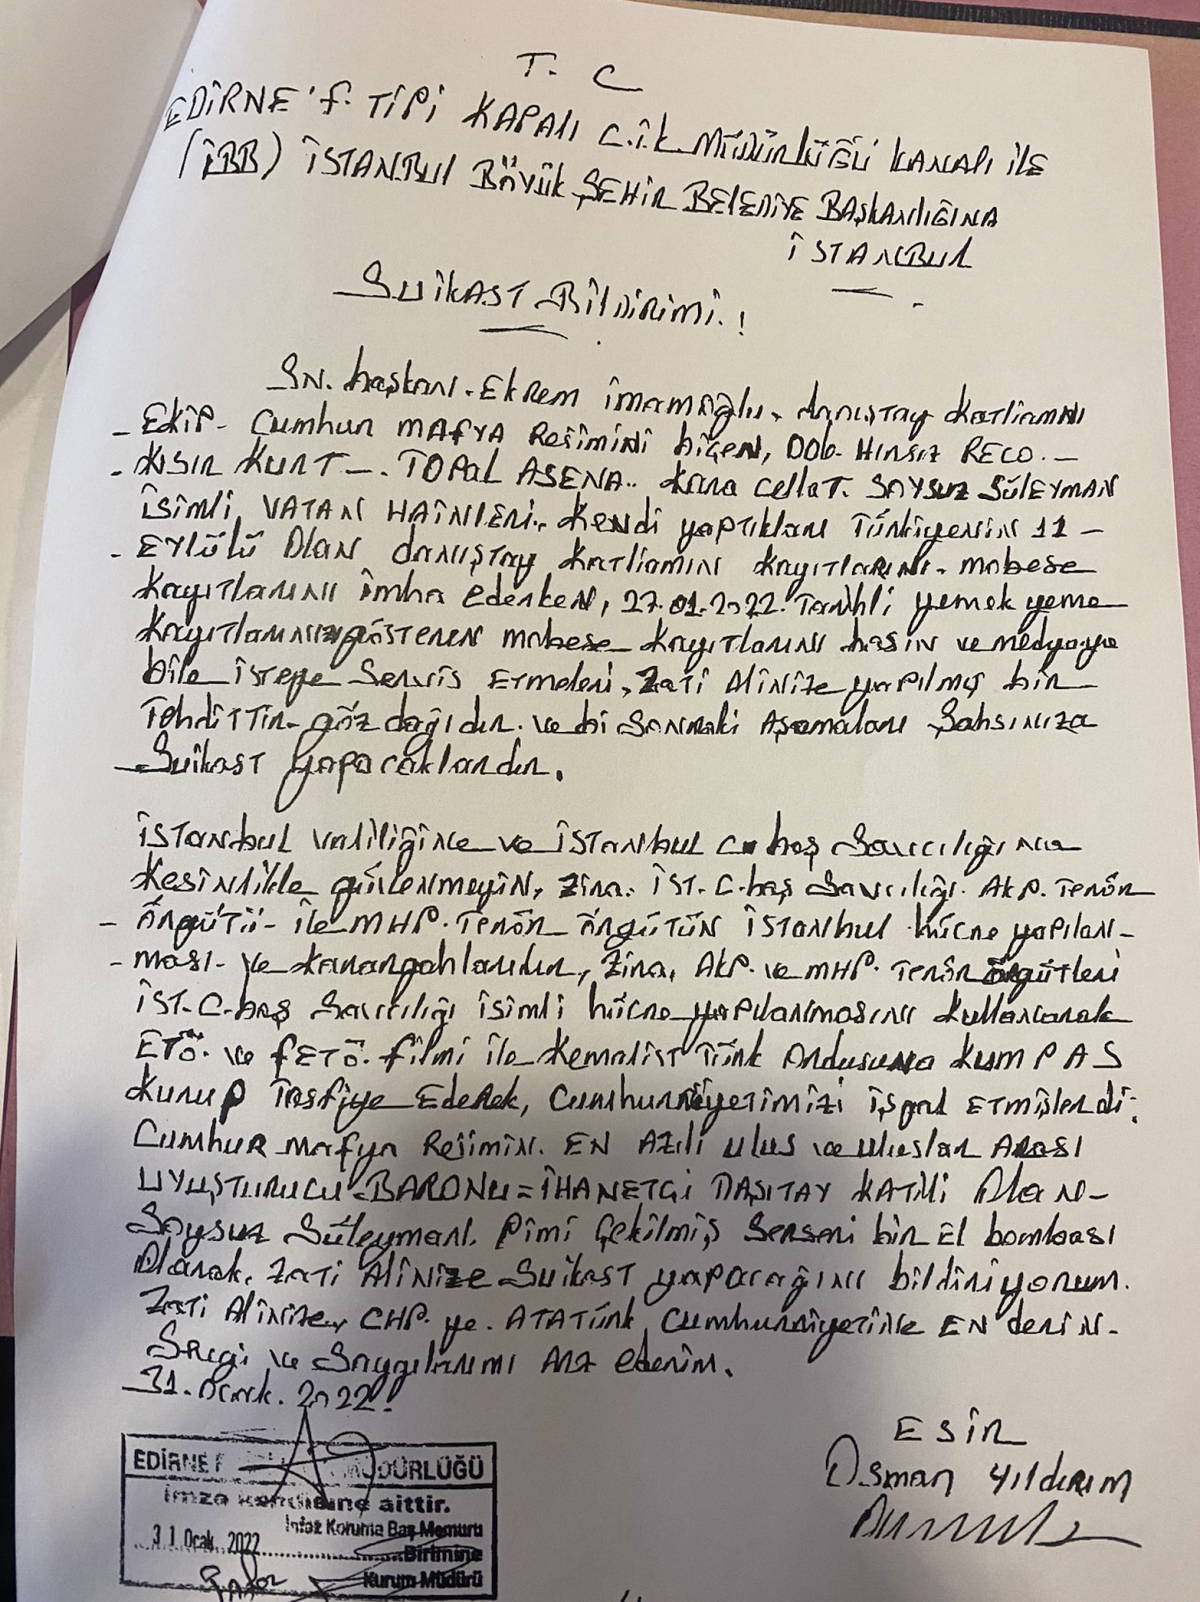 T. C
EDİRNE 'f. TİPİ KAPALI C.İ.K. MÜDÜRLÜĞÜ KANALI İLE
(İBB) İSTANBUL BÜYÜK ŞEHİR BELEDİYE BAŞKANLIĞINA
İSTANBUL
Suikast Bildirimi.!
Sn. başkan. Ekrem imamoğlu. danıştay katliamını
- Ekip- Cumhur MAFYA Rejimini biçen, Hırsız RECO. -
- Kısır KURT -. TOPAL ASENA.. Kara cellat. SOYSUZ SÜLEYMAN
İsimli, VATAN HAİNLERİ., Kendi yaptıkları Türkiyenin 11 -
- EYLÜLÜ Olan danıştay katliamını kayıtlarını. mobese
kayıtlarını imha ederken, 27.01.2022. Tarihli yemek yeme
kayıtlarınızı gösteren mobese kayıtlarını basın ve medyaya
bile isteye servis Etmeleri, Zati Alinize yapılmış bir
Tehdittir- göz dağıdır. ve bi Sonraki Aşamaları Şahsınıza
Suikast yapacaklardır.
İstanbul valiliğine ve İstanbul C. baş Savcılığına
Kesinlikle güvenmeyin, Zira. İST. C. baş Savcılığı. AKP. Terör
- Örgütü- ile MHP. Terör Örgütün İstanbul hücre yapılan-
- ması- ve karargahlarıdır, Zira, AKP. ve MHP. Terör örgütleri
İST. C. baş Savcılığı isimli hücre yapılanmasını kullanarak
ETÖ. ve FETÖ. filmi ile Kemalist Türk Ordusuna KUMPAS
kurup Tasfiye Ederek, Cumhuriyetimizi işgal Etmişlerdi.
Cumhur mafya Rejimin. EN AZILI ulus ve uluslar Arası
UYUŞTURUCU = BARONU = İHANETÇİ DAŞITAY KATİLİ Olan-
Soysuz Süleyman. Pimi Çekilmiş Serseri bir El bombası
Olarak, Zati Alinize Suikast yapacağını bildiriyorum.
Zati Alinize, CHP. ye. ATATÜRK Cumhuriyetine EN derin.
Sevgi ve Saygılarımı Arz ederim.
31. Ocak. 2022!
ESİR
Osman Yıldırım
EDİRNE F MÜDÜRLÜĞÜ
İmza kendisine aittir.
İnfaz Koruma Baş Memuru
31 Ocak 2022
Birimine
Kurum Müdürü